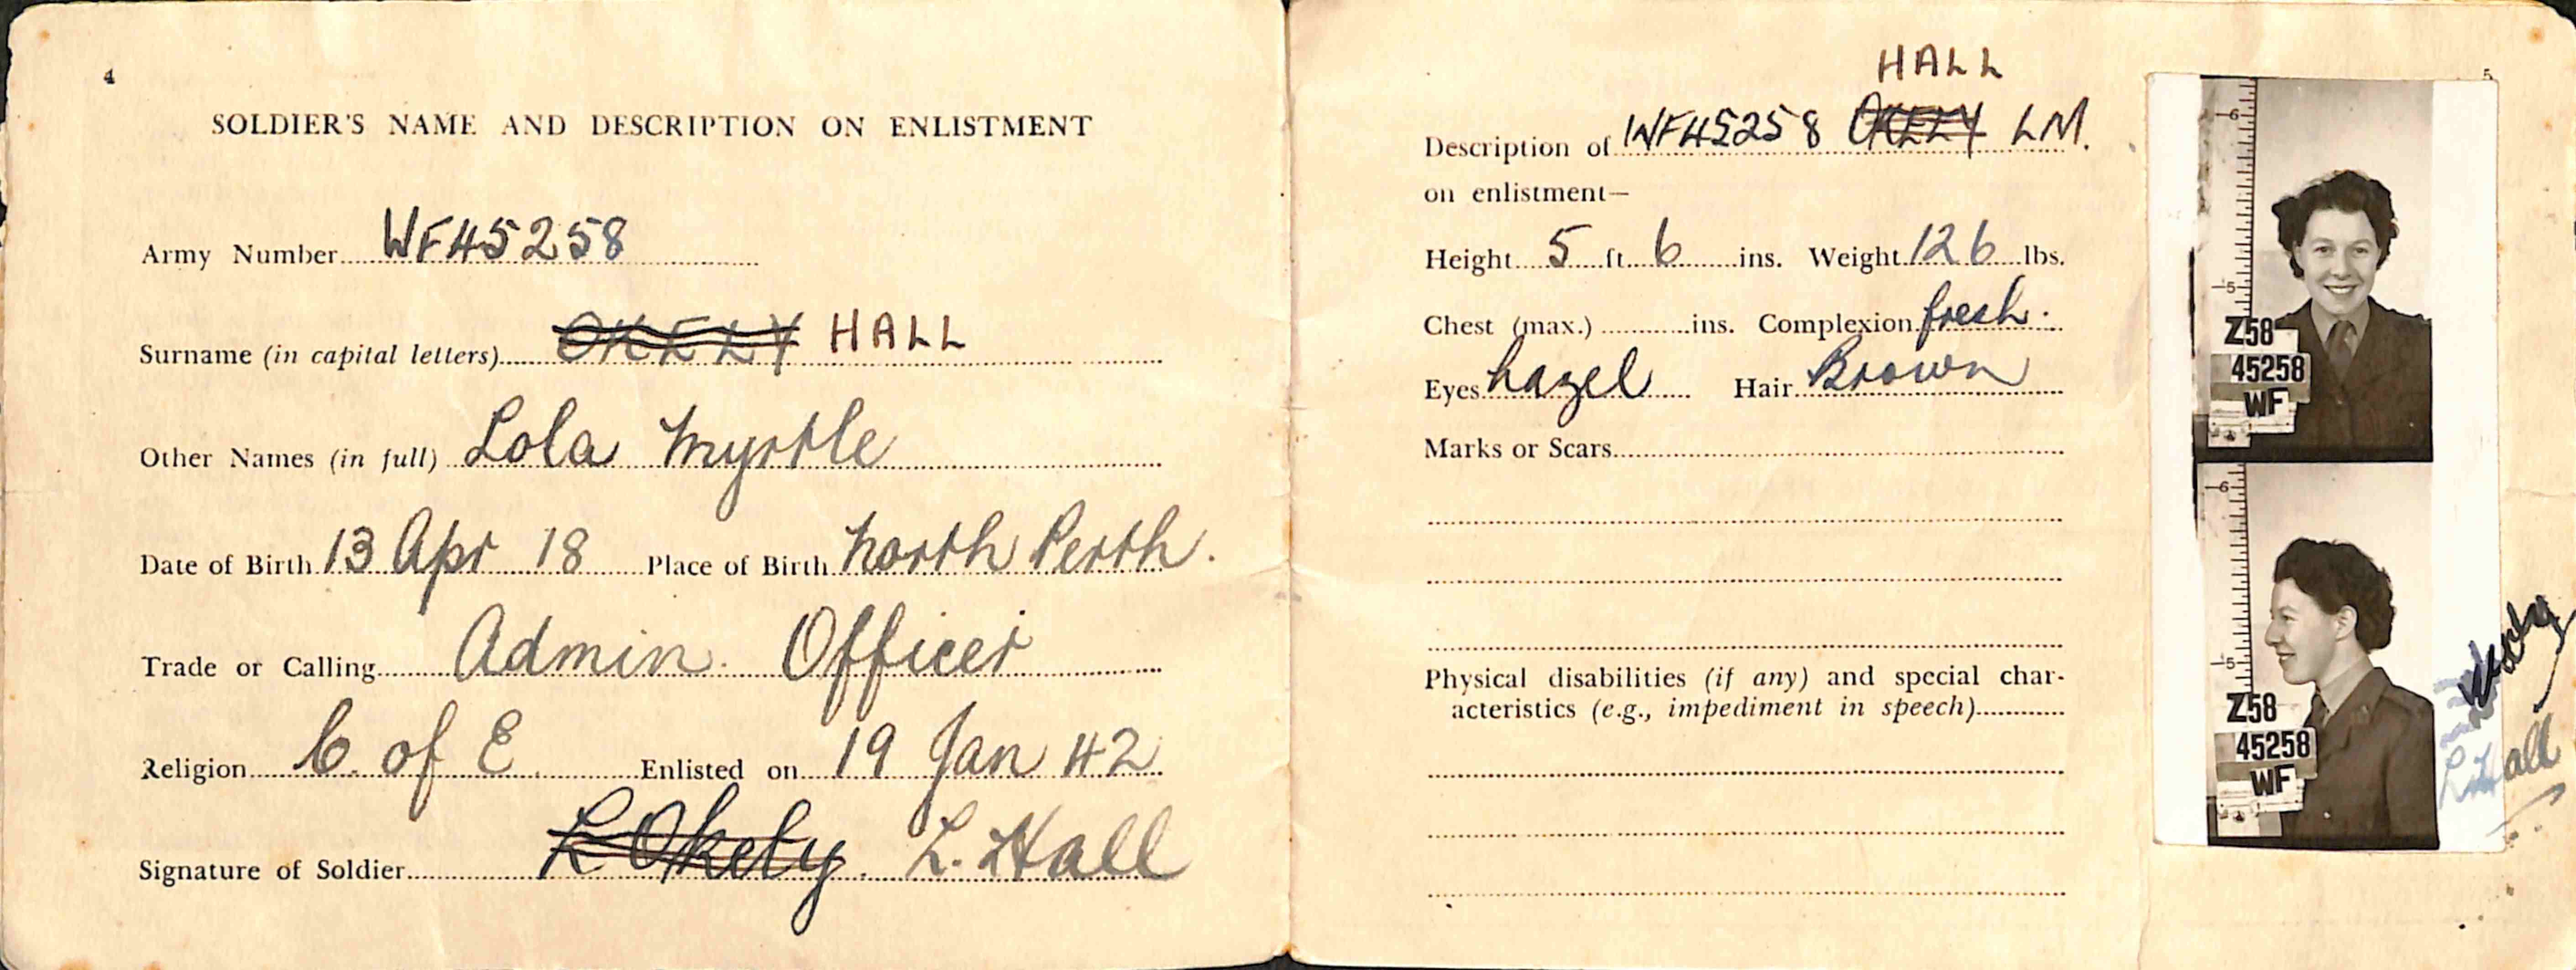 4
SOLDIER'S NAME AND DESCRIPTION ON ENLISTMENT
Army Number WF45258
Surname (in capital letters) OKELY HALL
Other Names (in full) Lola Myrtle
Date of Birth 13 Apr 18 Place of Birth North Perth.
Trade or Calling Admin. Officer
Religion C. of E. Enlisted on 19 Jan 42
Signature of Soldier L Okely. L. Hall
5
HALL
Description of WF45258 OKELY LM.
on enlistment—
Height 5 ft 6 ins. Weight 126 lbs.
Chest (max.) ins. Complexion fresh.
Eyes hazel Hair Brown
Marks or Scars
Physical disabilities (if any) and special char-
acteristics (e.g., impediment in speech)
6
5
Z58
45258
WF
6
5
Z58
45258
WF
L. Hall